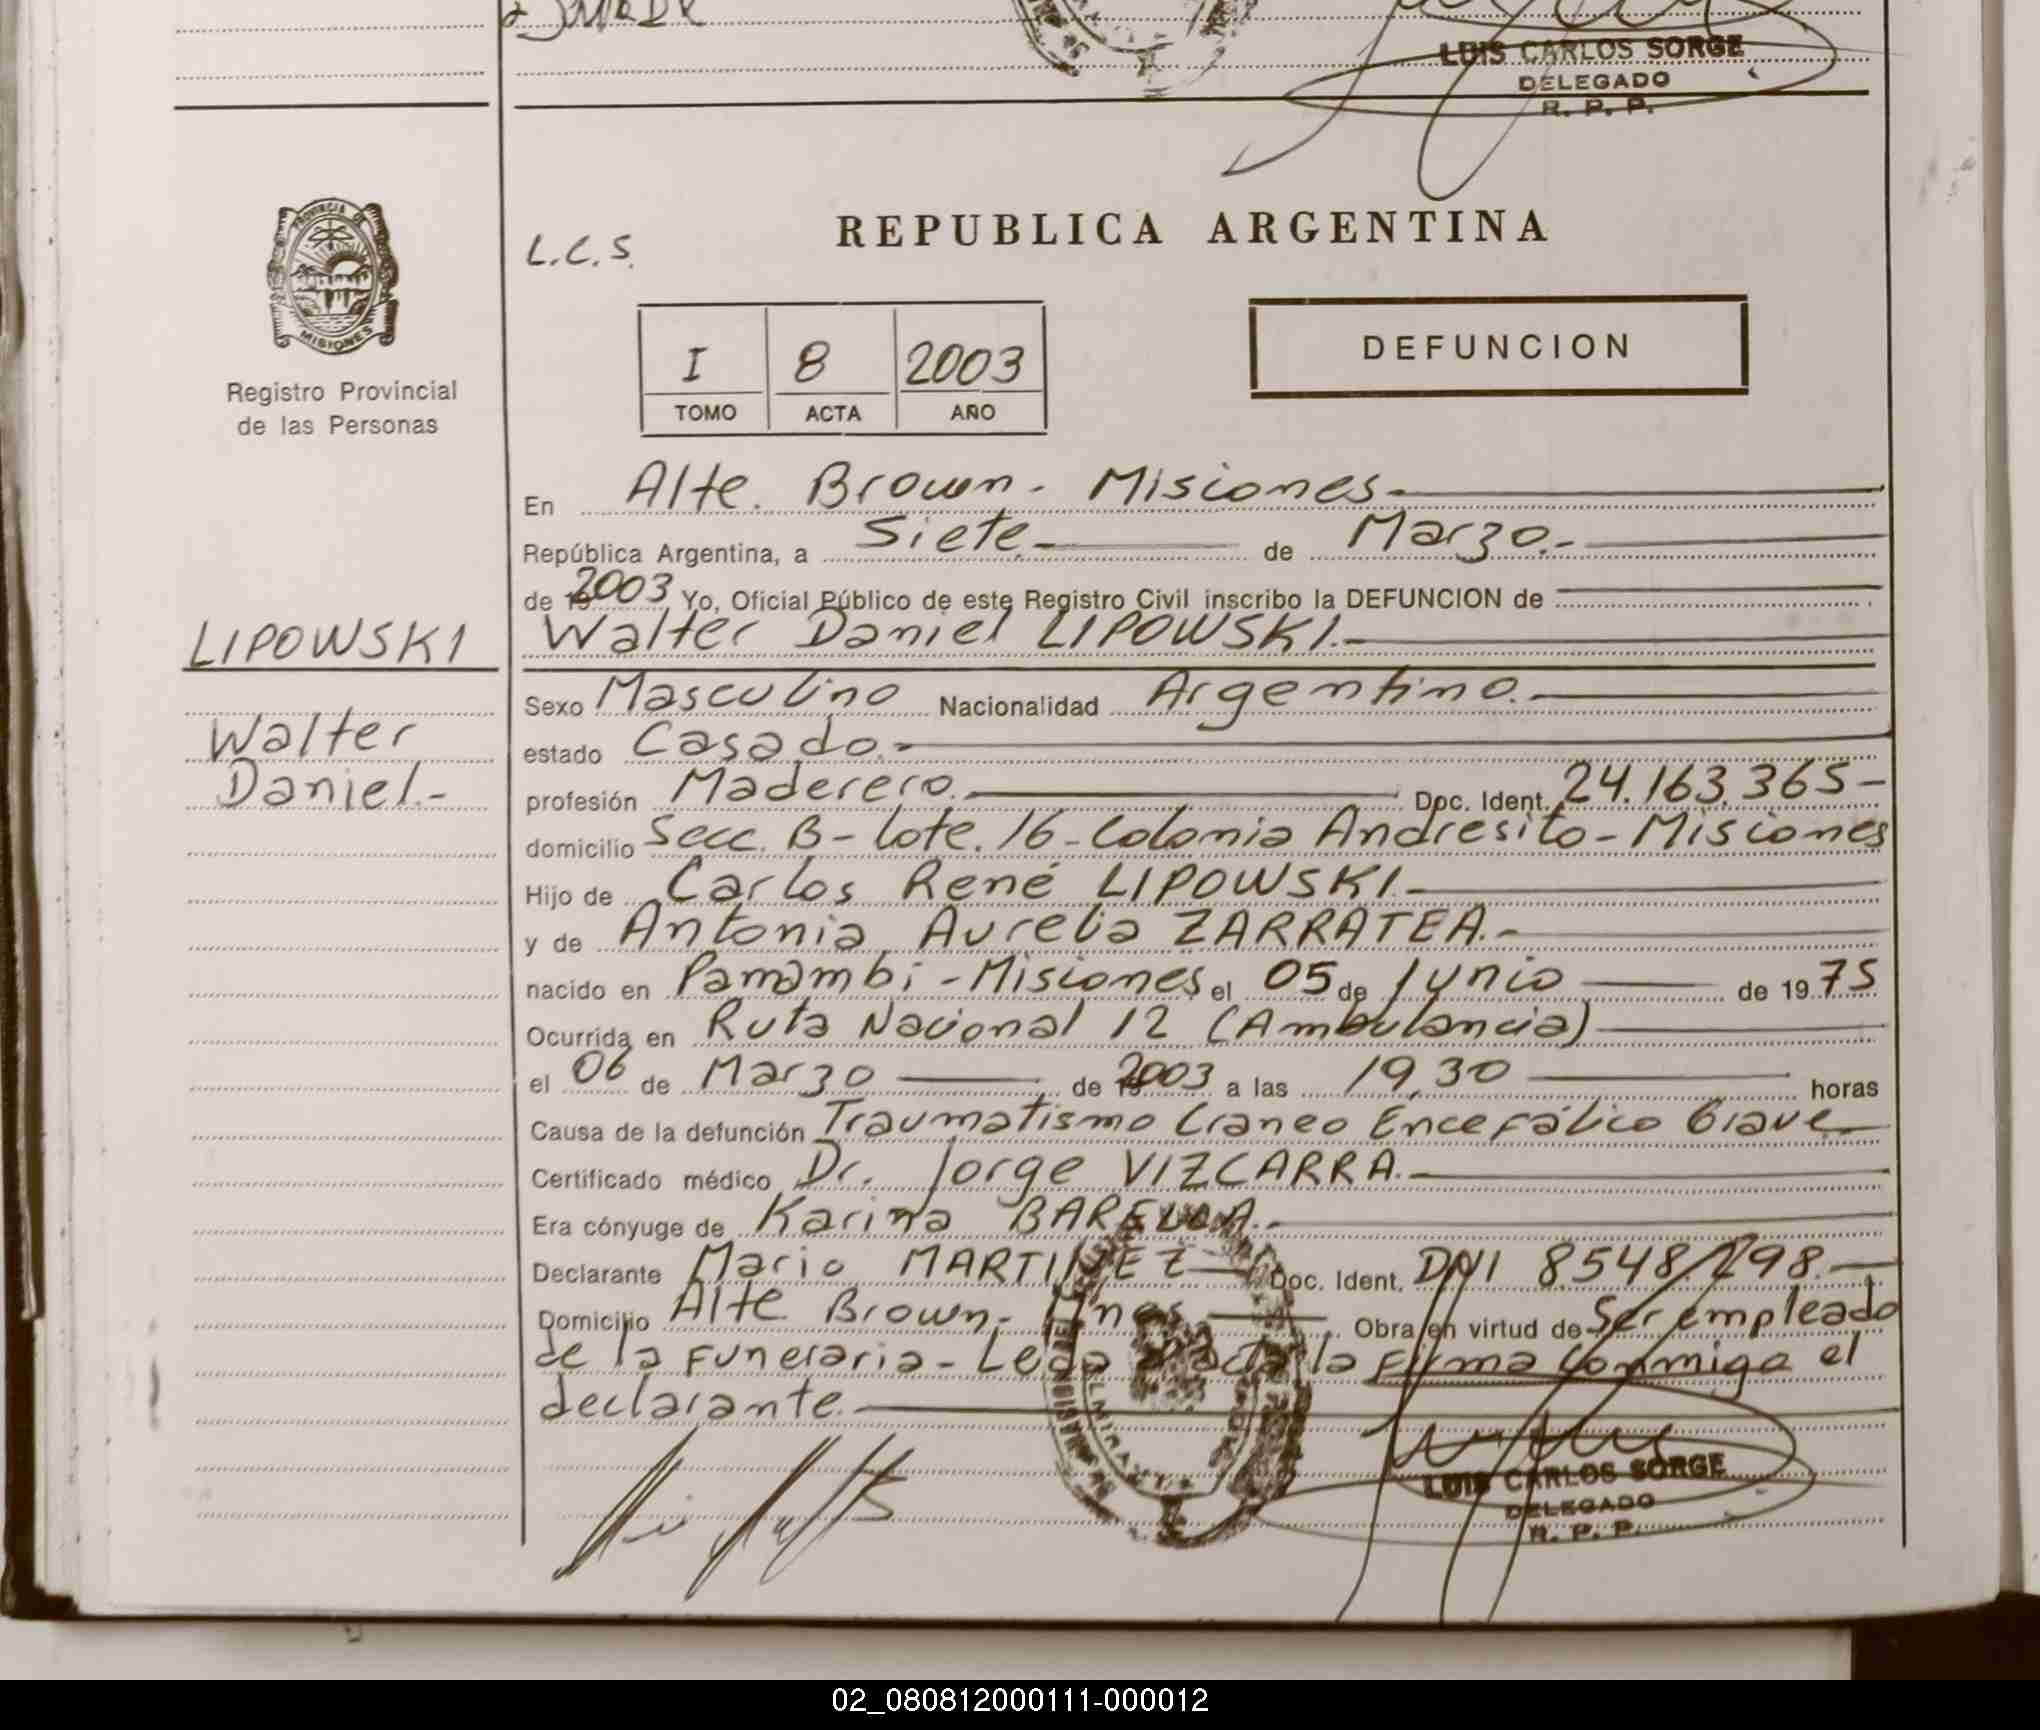 LUIS CARLOS SORGE
DELEGADO
R. P. P.
PROVINCIA DE
MISIONES
Registro Provincial
de las Personas
L.C.S.
REPUBLICA ARGENTINA
I 8 2003
TOMO ACTA AÑO
DEFUNCION
En Alte. Brown - Misiones.-
República Argentina, a Siete.- de Marzo.-
de 2003 Yo, Oficial Público de este Registro Civil inscribo la DEFUNCION de
Walter Daniel LIPOWSKI.-
LIPOWSKI
Walter
Daniel.-
Sexo Masculino Nacionalidad Argentino.-
estado Casado.-
profesión Maderero.- Doc. Ident. 24.163.365-
domicilio Secc. B - Lote. 16 - Colonia Andresito - Misiones
Hijo de Carlos René LIPOWSKI.-
y de Antonia Aurelia ZARRATEA.-
nacido en Panambi - Misiones el 05 de Junio de 1975
Ocurrida en Ruta Nacional 12 (Ambulancia)
el 06 de Marzo de 2003 a las 19,30 horas
Causa de la defunción Traumatismo Craneo Encefálico Grave
Certificado médico Dr. Jorge VIZCARRA.-
Era cónyuge de Karina
Declarante Mario MARTINEZ Doc. Ident. DNI 8548298.-
Domicilio Alte Brown - Mnes Obra en virtud de Ser empleado
de la Funeraria - Leda el acta la Firma Conmigo el
declarante.
LUIS CARLOS SORGE
DELEGADO
R. P. P.
02_080812000111-000012